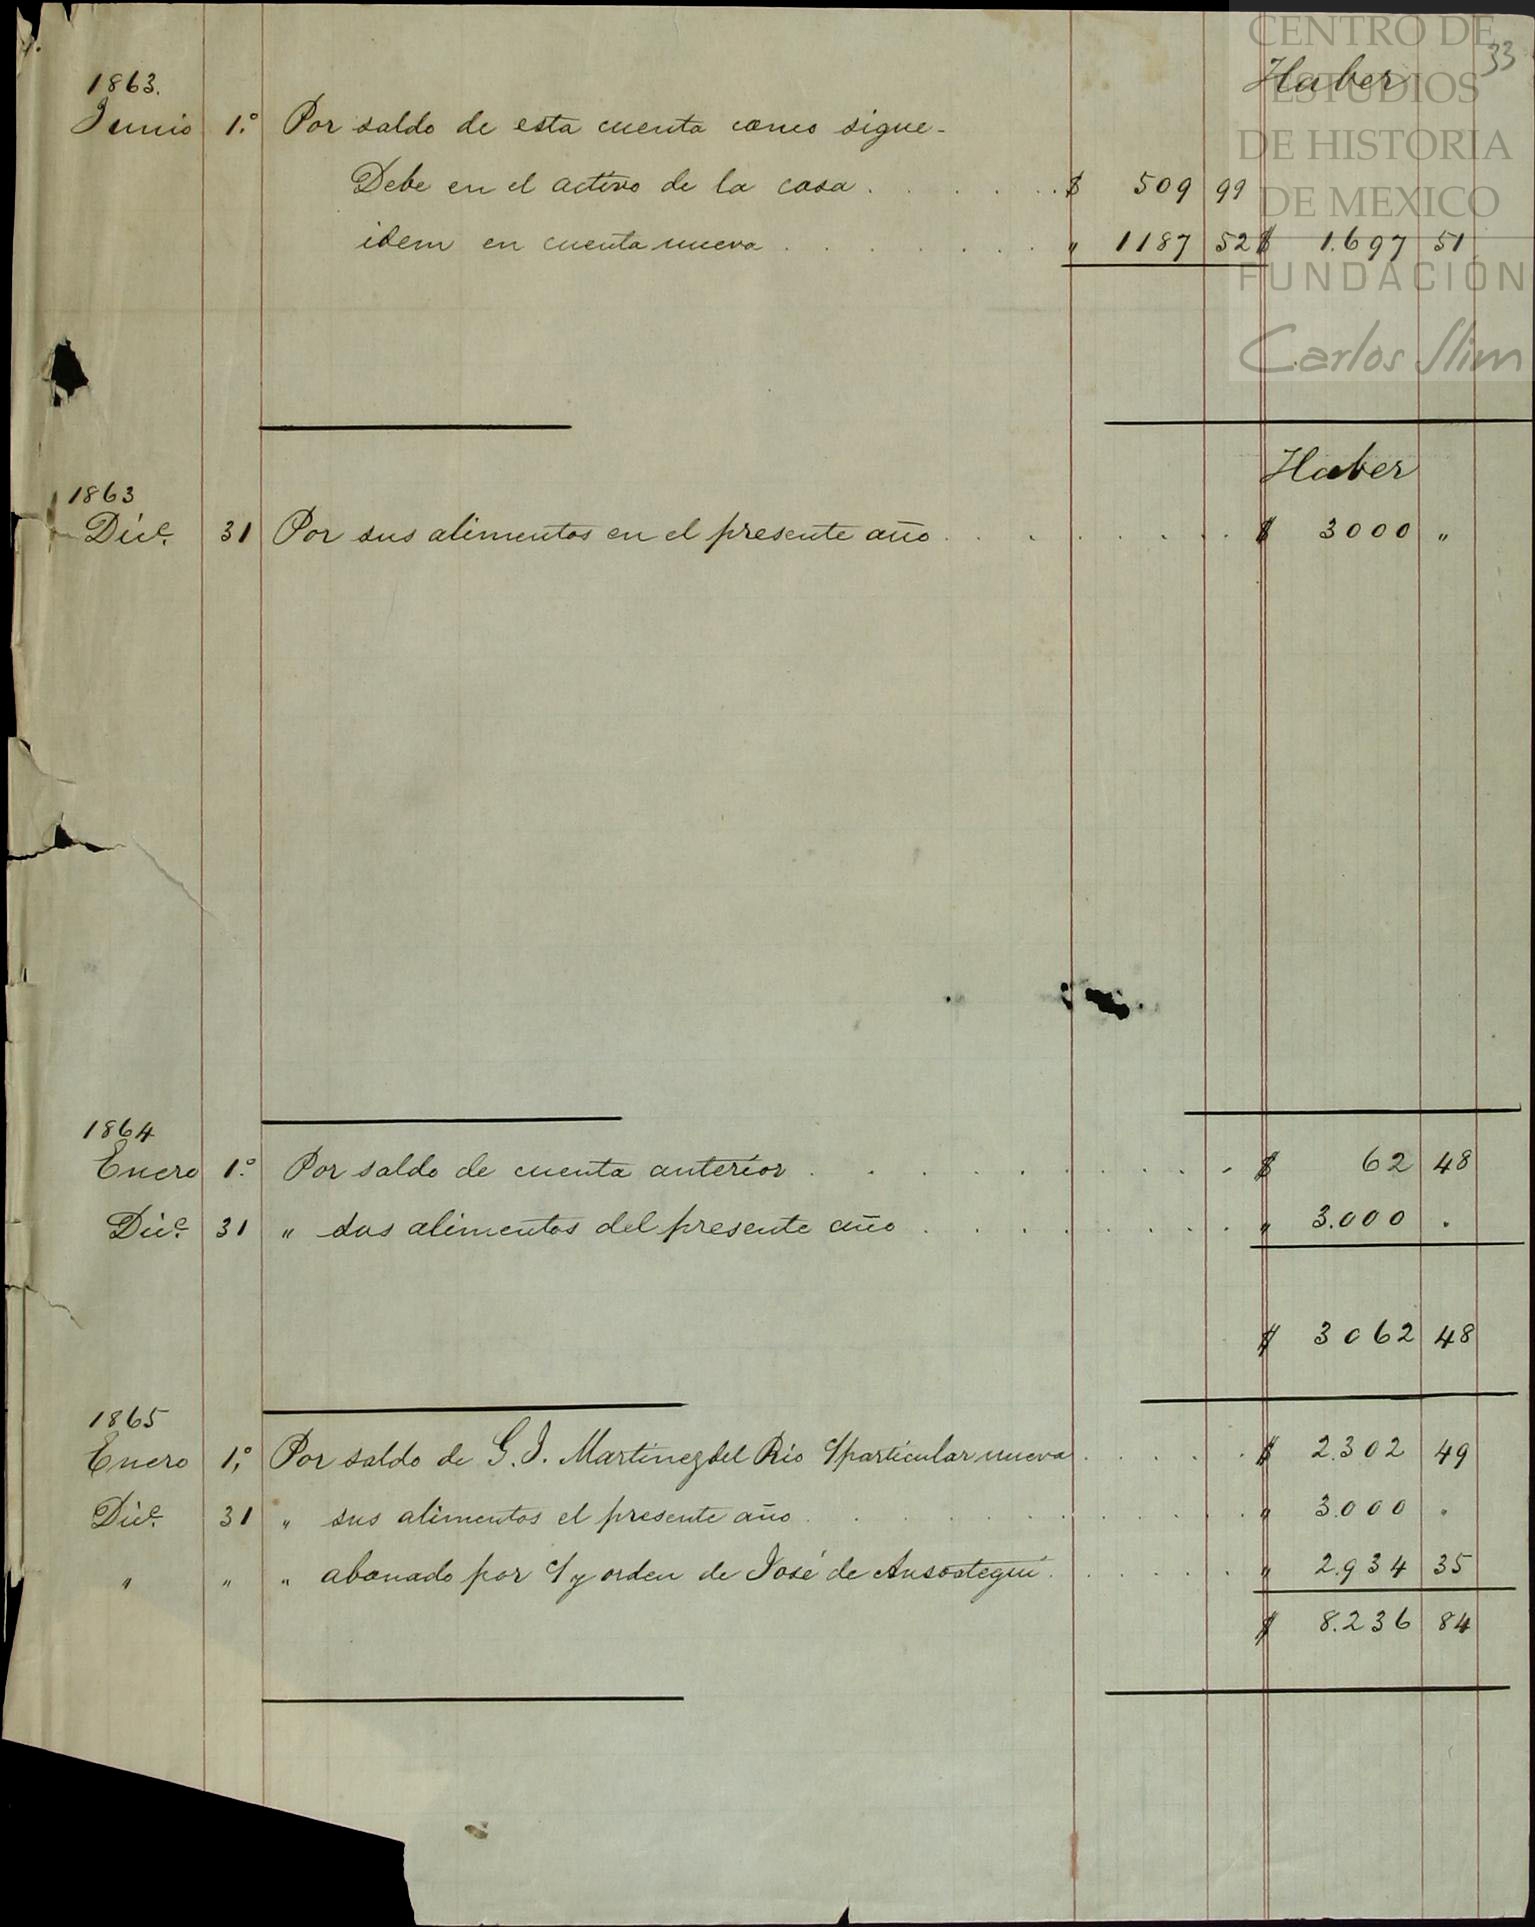 CENTRO DE
ESTUDIOS
DE HISTORIA
DE MEXICO
FUNDACIÓN
Carlos Slim
33
Haber
1863.
Junio 1.º Por saldo de esta cuenta como sigue-
Debe en el activo de la casa . . . . . . $ 509 99
idem en cuenta nueva . . . . . . . " 1187 52 $ 1.697 51
Haber
1863
Dice. 31 Por sus alimentos en el presente año . . . . . . . . $ 3000 "
1864
Enero 1.º Por saldo de cuenta anterior . . . . . . . . . . $ 62 48
Dice. 31 " sus alimentos del presente año . . . . . . . . " 3.000 .
$ 3062 48
1865
Enero 1º Por saldo de G. J. Martinez del Rio c/particular nueva . . . . . $ 2.302 49
Dice. 31 " sus alimentos el presente año . . . . . . . . . . . " 3.000 .
" " " abonado por c/ y orden de José de Ansoategui . . . . . . " 2.934 35
$ 8.236 84